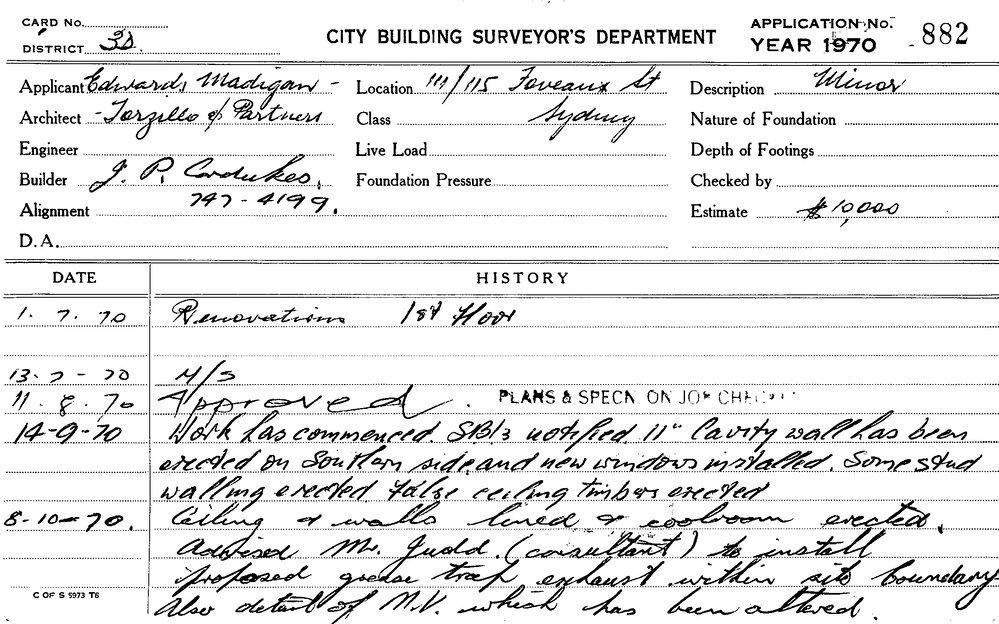 CARD No.
DISTRICT 3D.
CITY BUILDING SURVEYOR'S DEPARTMENT
APPLICATION No. 882
YEAR 1970
Applicant Edwards, Madigan -
Architect - Torzillo & Partners
Engineer
Builder J. P. Cordukes,
Alignment 747-4199.
D.A.
Location 111/115 Foveaux St
Class Sydney
Live Load
Foundation Pressure
Description Minor
Nature of Foundation
Depth of Footings
Checked by
Estimate $10,000
DATE HISTORY
1. 7. 70 Renovations 1st Floor
13.7-70 M/S
11.8.70 Approved. PLANS & SPECN. ON JOB
14-9-70 Work has commenced. SB13 notified 11" Cavity wall has been
erected on Southern side, and new windows installed. Some stud
walling erected False ceiling timbers erected
8-10-70. Ceiling & walls lined & coolroom erected.
Advised Mr. Judd. (consultant) to install
proposed grease trap exhaust within site boundary
Also detail of M.V. which has been altered.
C OF S 5973 T6